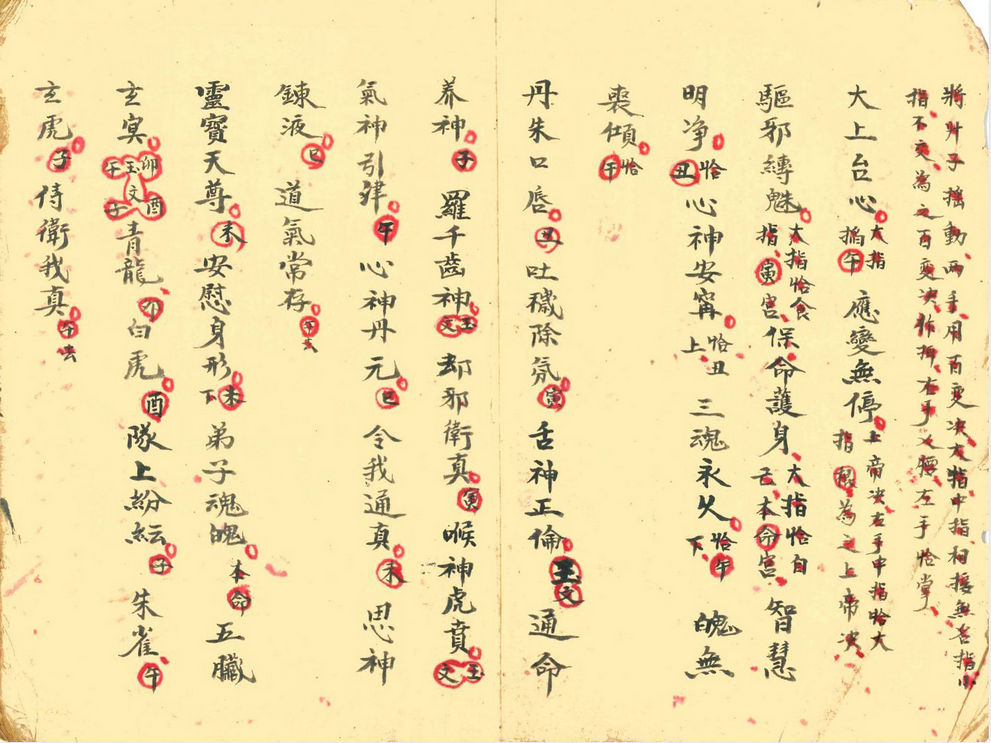 將身子搖動兩手用百變决大指中指相接無名指小
指不交為之百變决作揖右手义腰左手恰掌
大上台心大指掐午應變無停上帝决右手中指恰大指根為之上帝决
驅邪縛魅大指恰食指寅宮保命護身大指恰自己本命宮智慧
明净恰丑心神安寧恰丑上三魂永久恰午下魄無
喪傾恰午
丹朱口唇丑吐穢除氛寅舌神正倫玉文通命
养神子羅千齒神玉文却邪衛真寅喉神虎賁玉文
氣神引肂午心神丹元巳令我通真未思神
鍊液巳道氣常存午去
靈寶天尊未安慰身形未下弟子魂魄本命五臟
玄冥卯酉玉文午子青龍卯白虎酉隊上紛紜子朱雀午
玄虎子侍衛我真午去